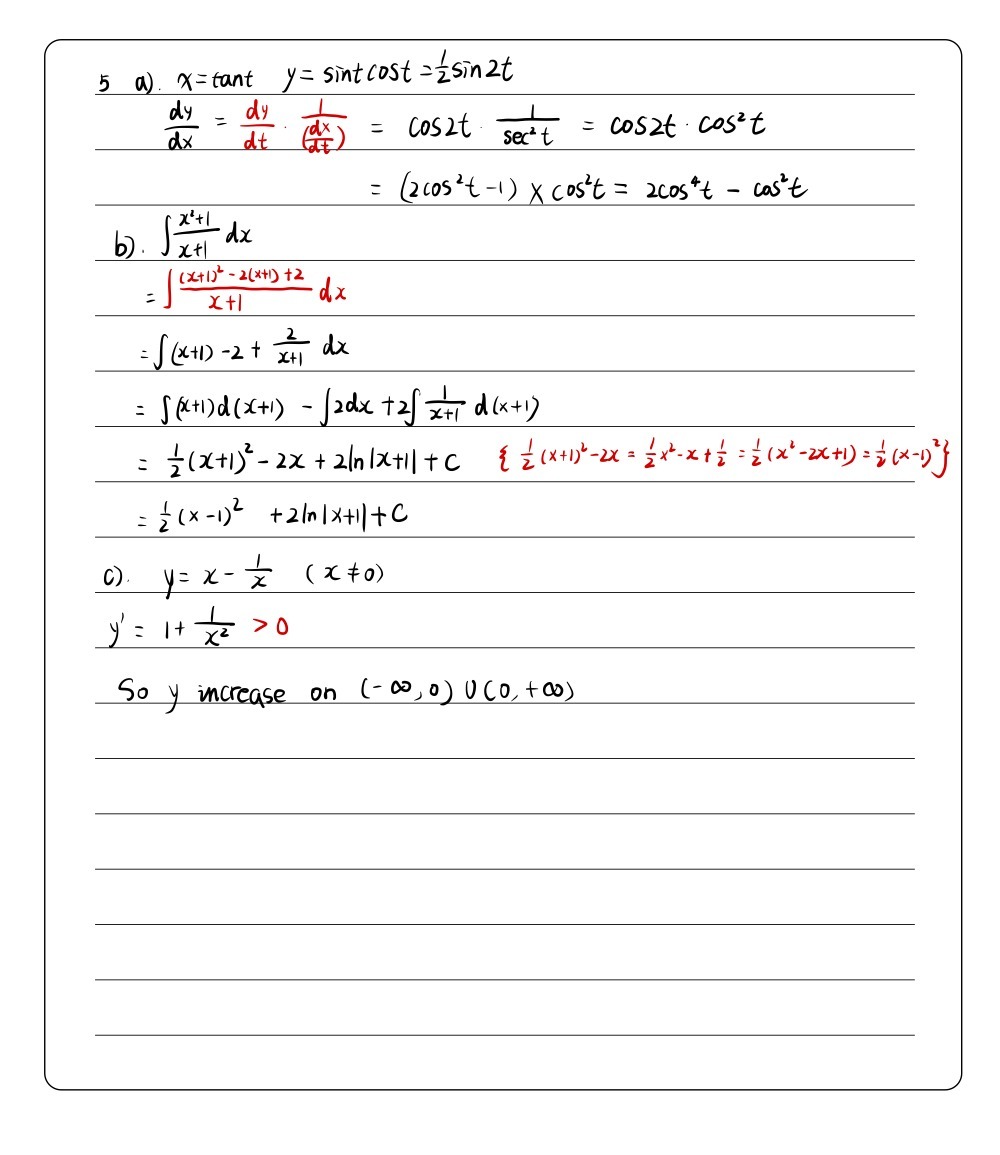 5 a). x=tant y= sintcost =½sin2t
dy/dx = dy/dt · 1/(dx/dt) = cos2t · 1/sec²t = cos2t · cos²t
= (2cos²t -1) × cos²t = 2cos⁴t - cos²t
b). ∫ (x²+1)/(x+1) dx
= ∫ ((x+1)² - 2(x+1) + 2)/(x+1) dx
= ∫ (x+1) - 2 + 2/(x+1) dx
= ∫(x+1)d(x+1) - ∫2dx + 2∫ 1/(x+1) d(x+1)
= ½(x+1)² - 2x + 2ln|x+1| + C { ½(x+1)² - 2x = ½x² - x + ½ = ½(x² - 2x + 1) = ½(x-1)² }
= ½(x-1)² + 2ln|x+1| + C
c). y = x - 1/x (x ≠ 0)
y' = 1 + 1/x² > 0
So y increase on (-∞, 0) ∪ (0, +∞)